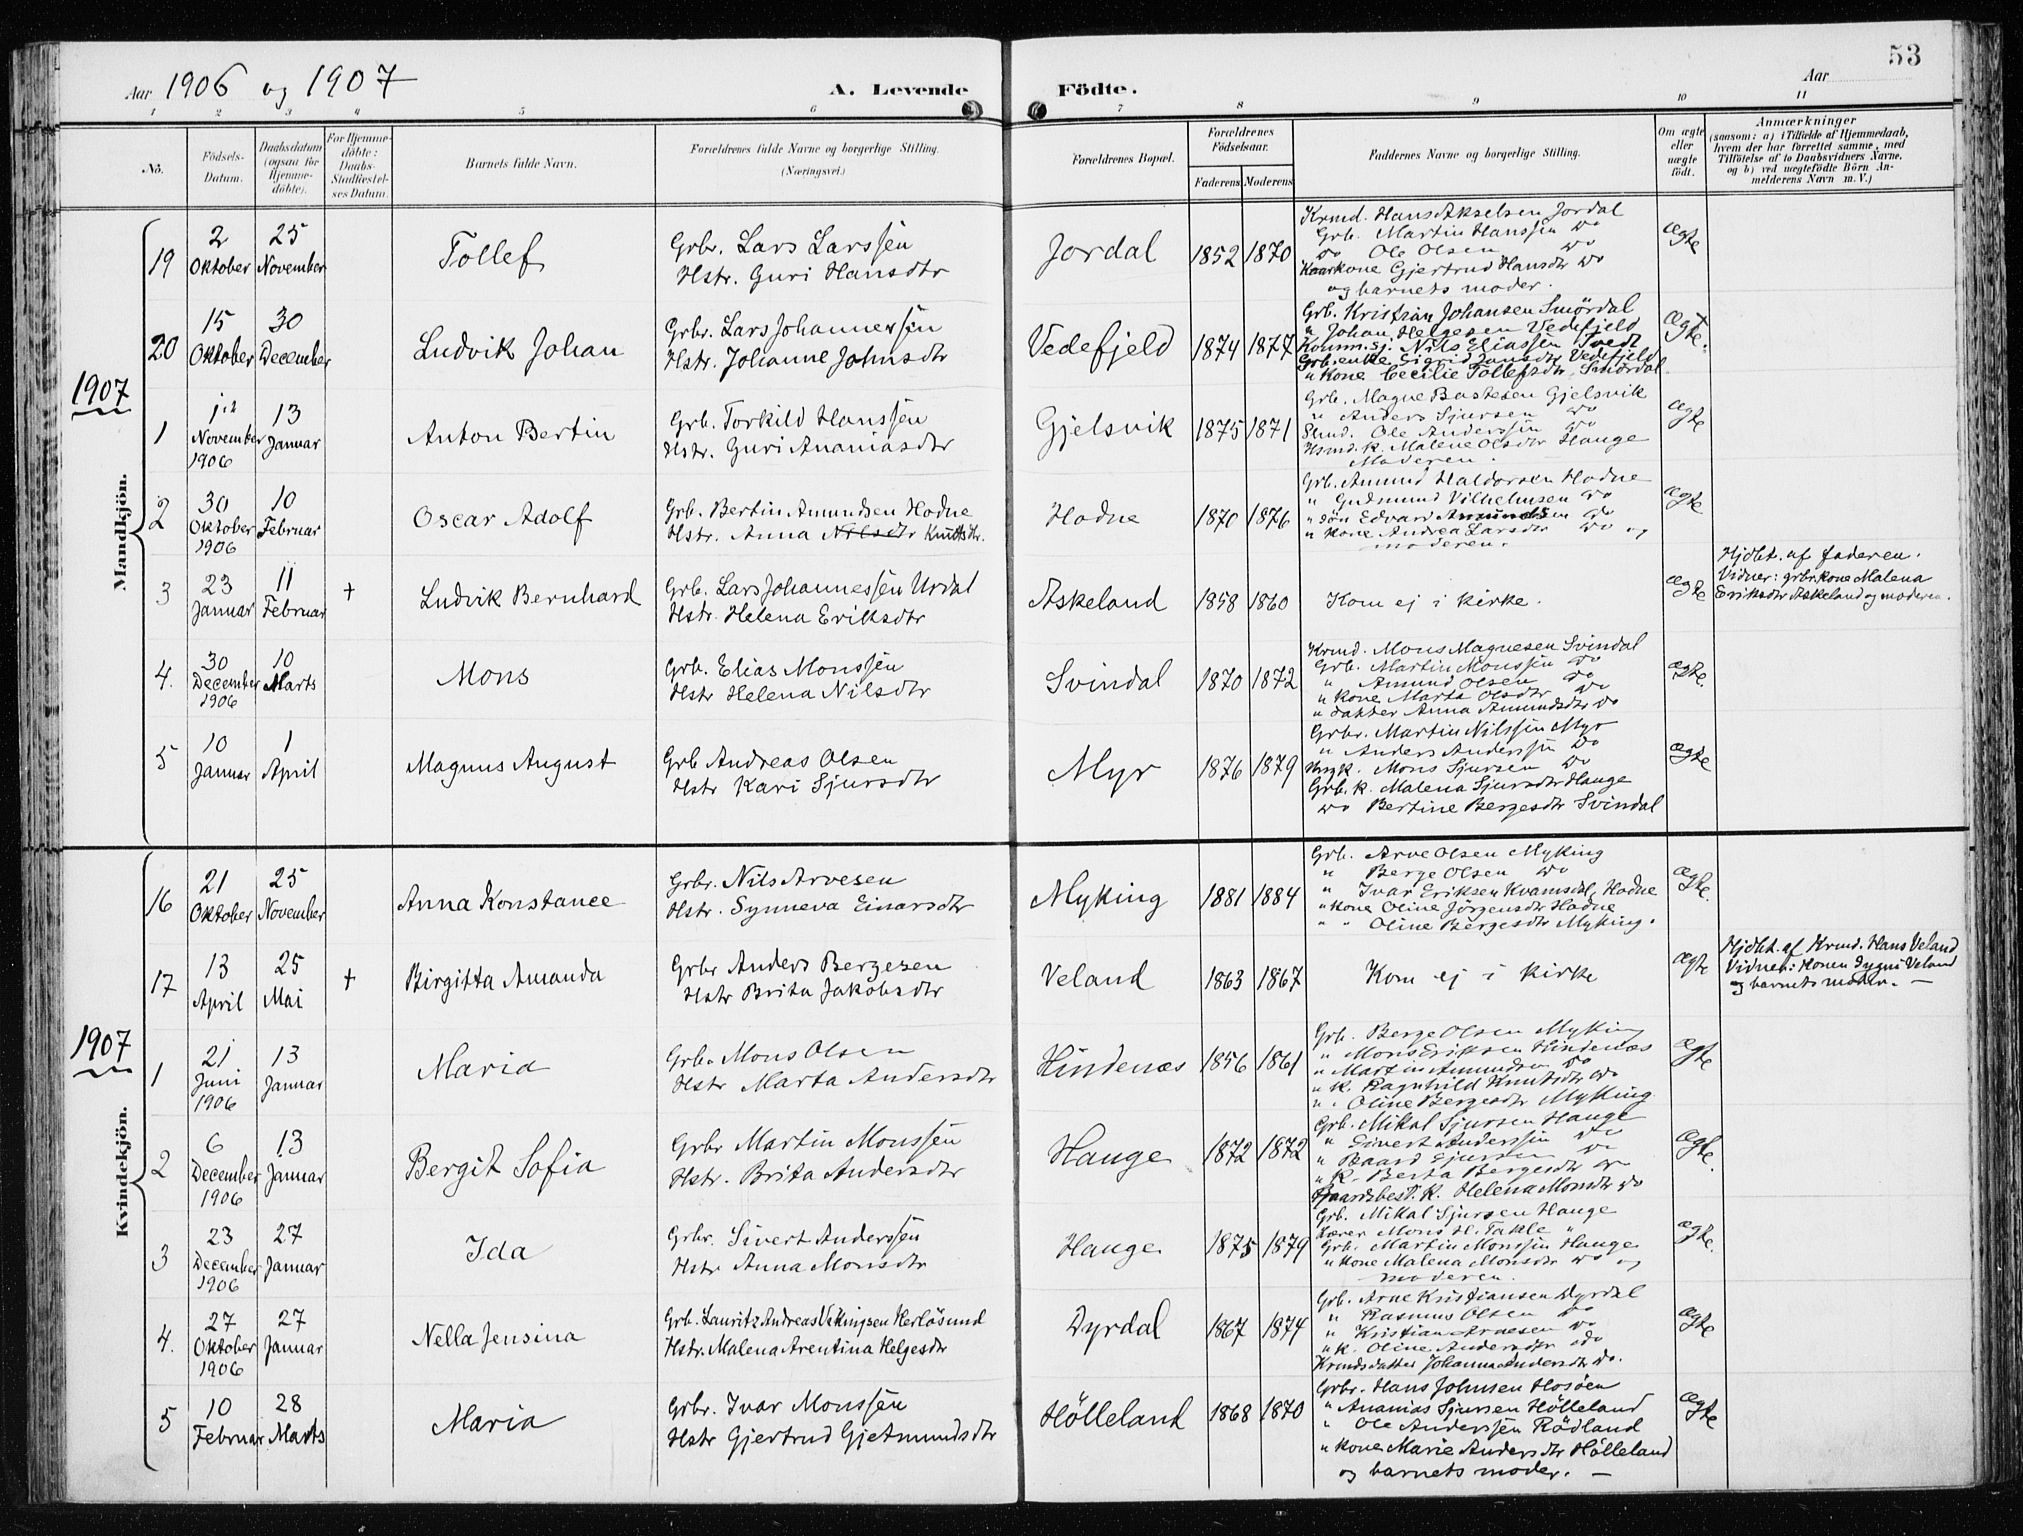 53
Aar 1906 og 1907
A. Levende Födte.
Aar
1 2 3 4 5 6 7 8 9 10 11
No.
Födsels-Datum.
Daabsdatum (ogsaa for Hjemme-döbte).
For Hjemme-döbte: Daabs-Stadfæstel-ses Datum.
Barnets fulde Navn.
Forældrenes fulde Navne og borgerlige Stilling. (Næringsvei.)
Forældrenes Bopæl.
Forældrenes Födselsaar.
Faderens Moderens
Faddernes Navne og borgerlige Stilling.
Om ægte eller uægte födt.
Anmærkninger
(saasom: a) i Tilfælde af Hjemmedaab, hvem der har forrettet samme, med Tilföielse af to Daabsvidners Navne, og b) ved uægtefödte Börn An-melderens Navn m. V.)
Mandkjön.
19
2 Oktober
25 November
Tollef
Grbr. Lars Larssen
Hstr. Guri Hansdtr
Jordal
1852 1870
Krmd. Hans Akselsen Jordal
Grb. Martin Hanssen do
do Ole Olsen do
Kaarkone Gjertrud Hansdtr do
og barnets moder.
ægte
20
15 Oktober
30 December
Ludvik Johan
Grbr. Lars Johannessen
Hstr. Johanne Johnsdtr
Vedefjeld
1874 1877
Grb. Kristian Johansen Smördal
" Johan Helgesen Vedefjeld
Nils Eliassen
Grb.enke Sigrid Jansdtr Vedefjeld
" Kone Cecilie Tollefsdtr Smördal
Ægte.
1907
1
November 1906
13 Januar
Anton Bertin
Grb. Torkild Hanssen
Hstr. Guri Ananiasdtr
Gjelsvik
1875 1871
Grb. Magne Bastesen Gjelsvik
" Anders Sjursen do
Ole Anderssen do
Hsmd. k. Malene Olsdtr Hauge
Moderen.
ægte
2
30 Oktober 1906
10 Februar
Oscar Adolf
Grb. Bertin Amundsen Hodne
Hstr. Anna Nilsdtr Knutsdtr.
Hodne
1870 1876
Grb. Amund Haldorsen Hodne
" Gudmund Vilhelmsen do
" sön Edvard Amundsen do
" Kone Andrea Larsdtr do og
moderen.
ægte
3
23 Januar
11 Februar
+
Ludvik Bernhard
Grb. Lars Johannessen Urdal
Hstr. Helena Eriksdtr
Askeland
1858 1860
Kom ej i kirke.
ægte
Hjdbt. af faderen.
Vidner: grbr.kone Malena
Eriksdtr Askeland og moderen.
4.
30 December 1906
10 Marts
Mons
Grb. Elias Monssen
Hstr Helena Nilsdtr
Svindal
1870 1872
Krmd. Mons Magnesen Svindal
Grb. Martin Monssen do
" Amund Olsen do
" Kone Marta Olsdtr do
" datter Anna Amundsdtr do
ægte.
5
10 Januar
1 April
Magnus August
Grb Andreas Olsen
Hstr Kari Sjursdtr
Myr
1876 1879
Grbr. Martin Nilssen Myr
" Anders Anderssen do
Mons Sjursen do
Grb. k. Malena Sjursdtr Hauge
do Bertine Bergesdtr Svindal
ægte
Kvindekjön.
16
21 Oktober
25 November
Anna Konstance
Grbr. Nils Arvesen
Hstr. Synneva Einarsdtr
Myking
1881 1884
Grb. Arve Olsen Myking
" Berge Olsen do
" Ivar Eriksen Kvamsdal, Hodne
" Kone Oline Jörgensdtr Hodne
" " Oline Bergesdtr Myking.
ægte.
17
13 April
25 Mai
+
Birgitta Amanda
Grbr Anders Bergesen
Hstr Brita Jakobsdtr
Veland
1863 1867
Kom ej i kirke
ægte
Hjdbt. af Krmd. Hans Veland
Vidner: Konen Sygni Veland
og barnets moder. —
1907
1
21 Juni 1906
13 Januar
Maria
Grb. Mons Olsen
Hstr Marta Andersdtr
Hindenæs
1856 1861
Grb. Berge Olsen Myking
" Mons Eriksen Hindenæs
" Martin Amundsen do
" K. Ragnhild Knutsdtr do
" " Oline Bergesdtr Myking
ægte
2
6 December 1906
13 Januar
Bergit Sofia
Grbr Martin Monssen
Hstr. Brita Andersdtr
Hauge
1872 1872
Grb. Mikal Sjursen Hauge
" Sivert Anderssen do
" Baard Sjursen do
" K. Berta Bergesdtr do
Gaardsbest. K. Helena Monsdtr do
Ægte.
3
23 December 1906
27 Januar
Ida
Grbr. Sivert Anderssen
Hstr Anna Monsdtr
Hauge
1875 1879
Grb. Mikal Sjursen Hauge
Lærer Mons H. Takle "
Grb. Martin Monssen Hauge
" Kone Malena Monsdtr do og
moderen.
ægte.
4.
27 Oktober 1906
27 Januar
Nella Jensina
Grb. Lauritz Andreas Vikingsen Herlösund
Hstr. Malena Arentina Helgesdtr
Dyrdal
1867 1874
Grb. Arne Kristiansen Dyrdal
" Rasmus Olsen do
" Kristian Arnesen do
" k. Oline Andersdtr do
Krmdsdatter Johanna Andersdtr do.
ægte
5
10 Februar
28 Marts
Maria
Grbr. Ivar Monssen
Hstr Gjertrud Gjetmundsdtr
Hölleland
1868 1870
Grbr. Hans Johnsen Hosöen
" Ananias Sjursen Hölleland
" Ole Anderssen Rödland
" Kone Marie Andersdtr Hölleland
og barnets moder. —
Ægte